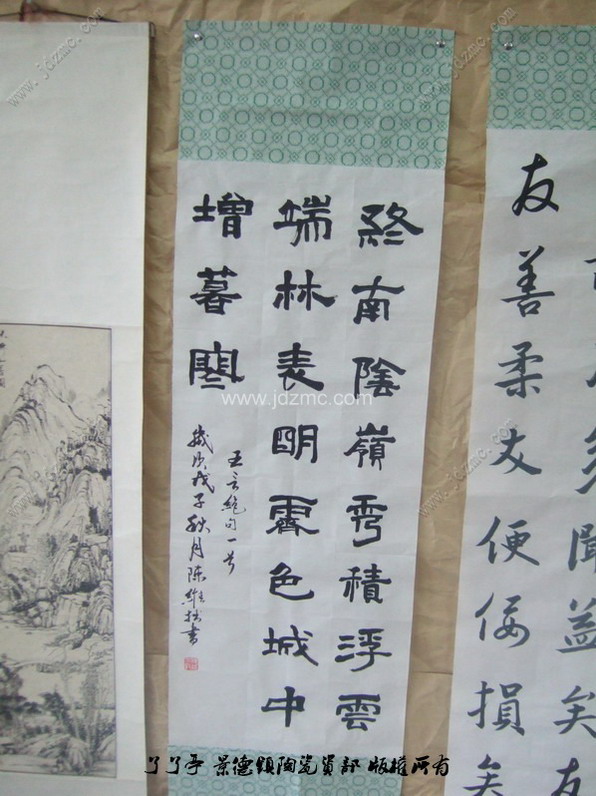 多聞益矣友
友善柔友便佞損矣
終南陰嶺秀積浮雲
端林表明霽色城中
增暮寒
五言絕句一首
歲次戊子秋月陳維書
www.jdzmc.com
www.jdzmc.com
www.jdzmc.com
www.jdzmc.com
了了亭 景德鎮陶瓷資部 版權所有